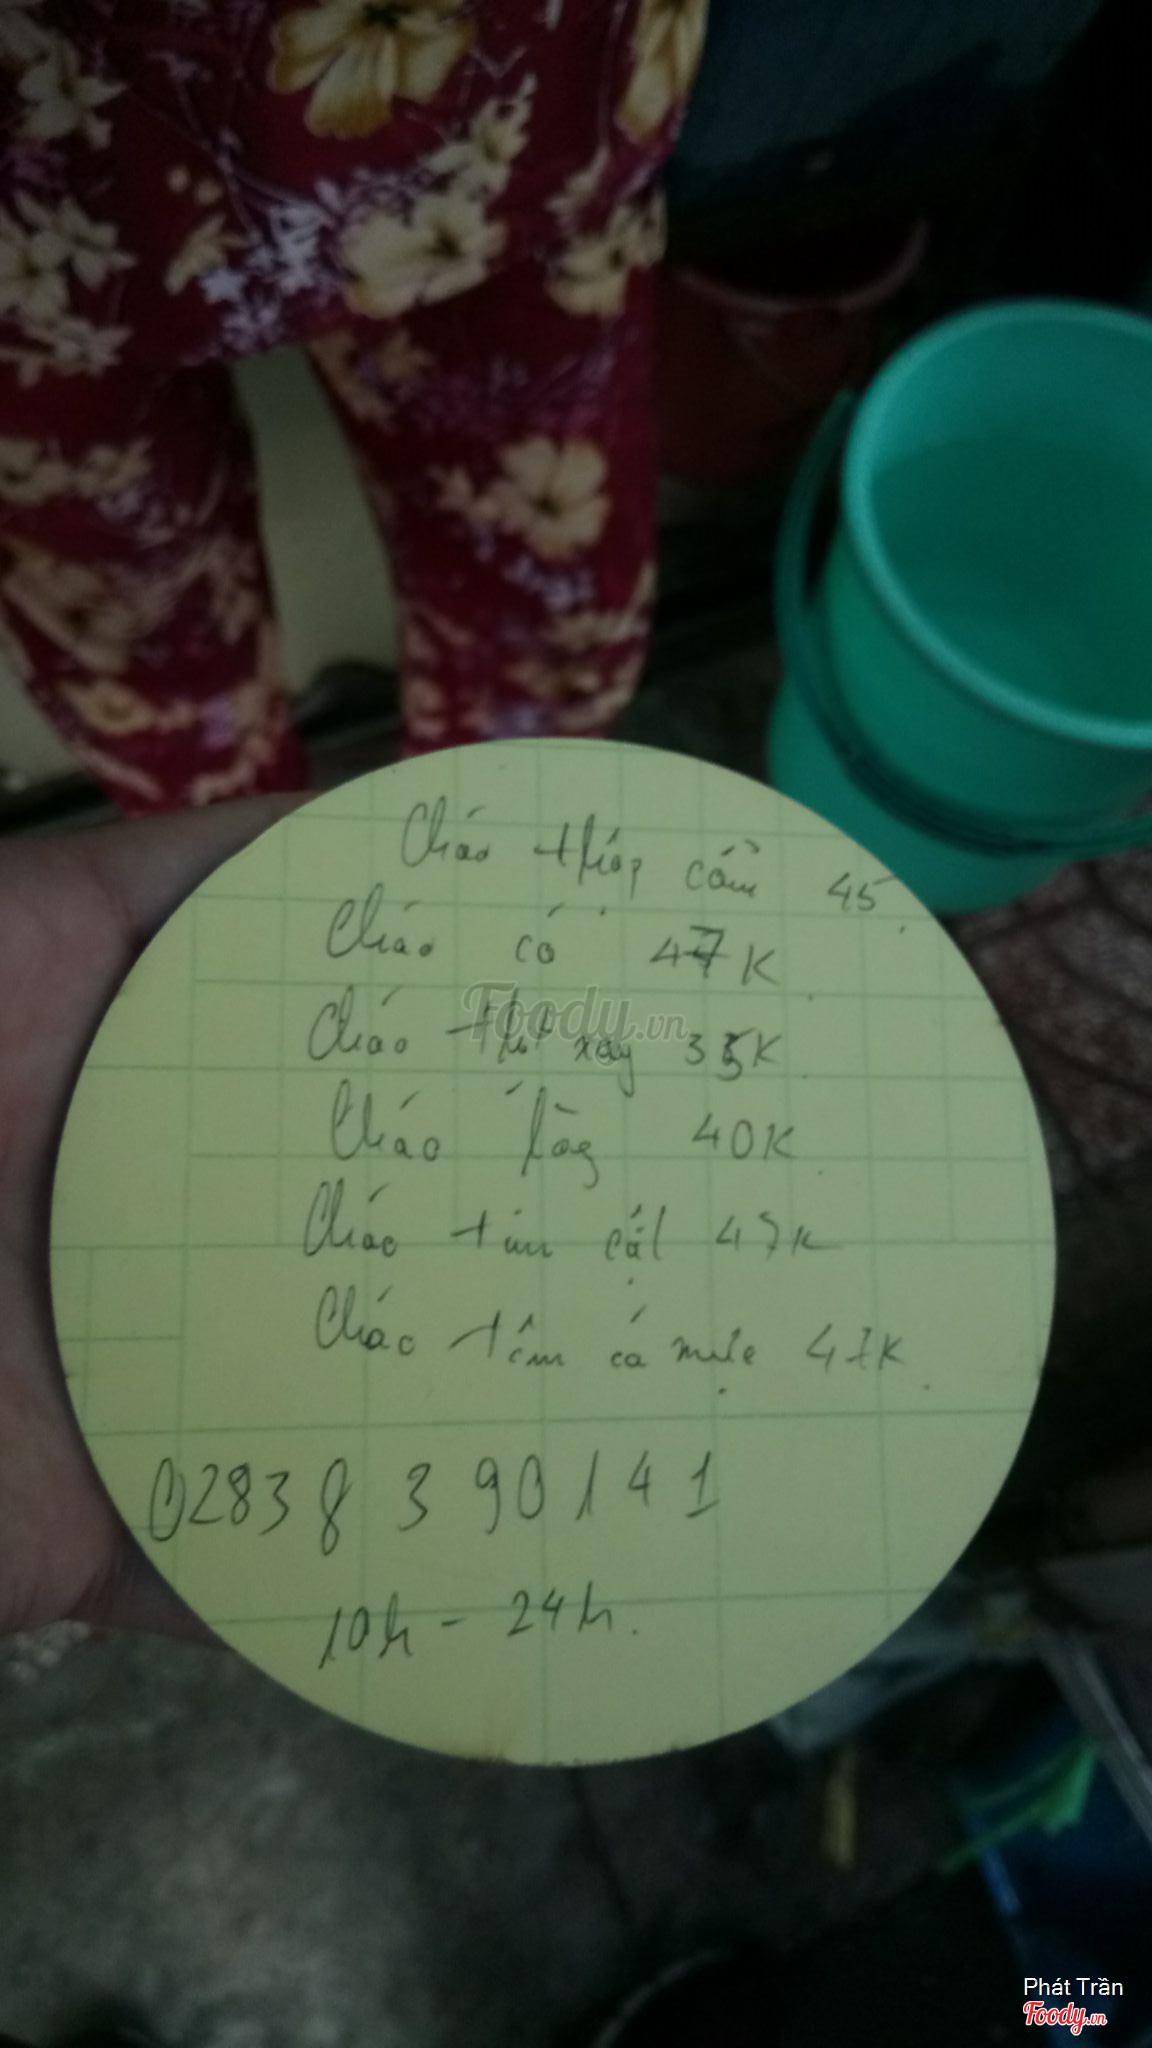 Cháo thập cẩm 45
Cháo cá 47K
Cháo thịt xay 35K
Cháo lòng 40K
Cháo tim cật 47K
Cháo tôm cá mực 47K
02838 390141
10h - 24h.
Foody.vn
Phát Trần
Foody.vn